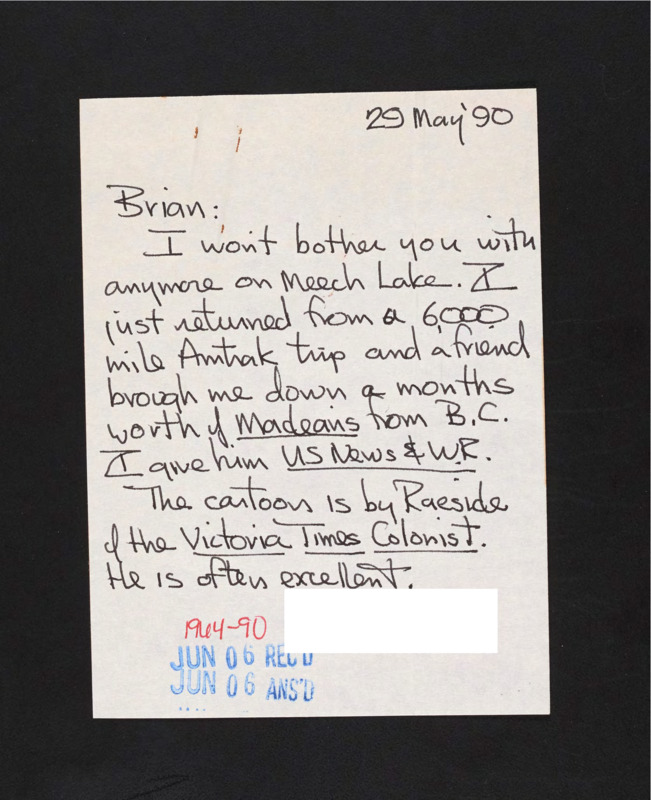 29 May '90
Brian:
I won't bother you with
anymore on Meech Lake. I
just returned from a 6,000
mile Amtrak trip and a friend
brough me down a months
worth of Macleans from B.C.
I give him US News & W.R.
The cartoon is by Raeside
of the Victoria Times Colonist.
He is often excellent.
1964-90
JUN 06 REC'D
JUN 06 ANS'D